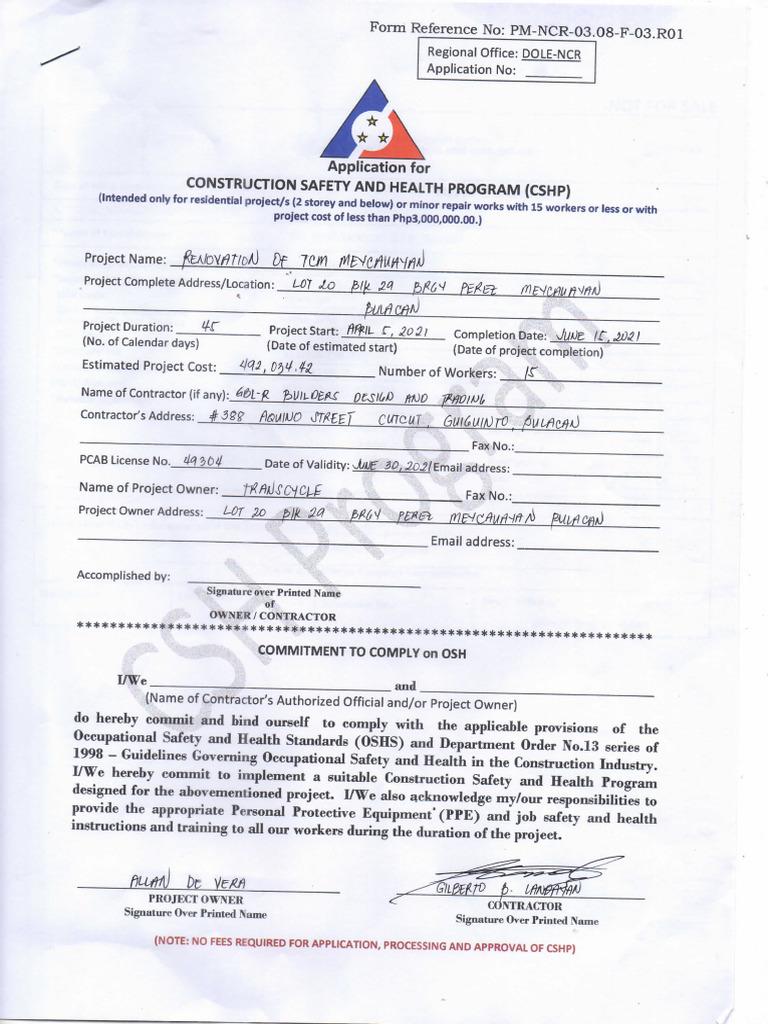 Form Reference No: PM-NCR-03.08-F-03.R01
Regional Office: DOLE-NCR
Application No: ________
Application for
CONSTRUCTION SAFETY AND HEALTH PROGRAM (CSHP)
(Intended only for residential project/s (2 storey and below) or minor repair works with 15 workers or less or with
project cost of less than Php3,000,000.00.)
Project Name: RENOVATION OF TCM MEYCAUAYAN
Project Complete Address/Location: LOT 20 Blk 29 BRGY PEREZ MEYCAUAYAN
BULACAN
Project Duration: 45 Project Start: APRIL 5, 2021 Completion Date: JUNE 15, 2021
(No. of Calendar days) (Date of estimated start) (Date of project completion)
Estimated Project Cost: 492,034.42 Number of Workers: 15
Name of Contractor (if any): GBL-R BUILDERS DESIGN AND TRADING
Contractor's Address: #388 AQUINO STREET CUTCUT, GUIGUINTO, BULACAN
Fax No.:
PCAB License No. 49304 Date of Validity: JUNE 30, 2021 Email address:
Name of Project Owner: TRANSCYCLE Fax No.:
Project Owner Address: LOT 20 Blk 29 BRGY PEREZ MEYCAUAYAN BULACAN
Email address:
Accomplished by:
Signature over Printed Name
of
OWNER / CONTRACTOR
COMMITMENT TO COMPLY on OSH
I/We ________ and ________
(Name of Contractor's Authorized Official and/or Project Owner)
do hereby commit and bind ourself to comply with the applicable provisions of the
Occupational Safety and Health Standards (OSHS) and Department Order No.13 series of
1998 – Guidelines Governing Occupational Safety and Health in the Construction Industry.
I/We hereby commit to implement a suitable Construction Safety and Health Program
designed for the abovementioned project. I/We also acknowledge my/our responsibilities to
provide the appropriate Personal Protective Equipment (PPE) and job safety and health
instructions and training to all our workers during the duration of the project.
ALLAN DE VERA GILBERTO B. LANDAYAN
PROJECT OWNER CONTRACTOR
Signature Over Printed Name Signature Over Printed Name
(NOTE: NO FEES REQUIRED FOR APPLICATION, PROCESSING AND APPROVAL OF CSHP)
CSH Program